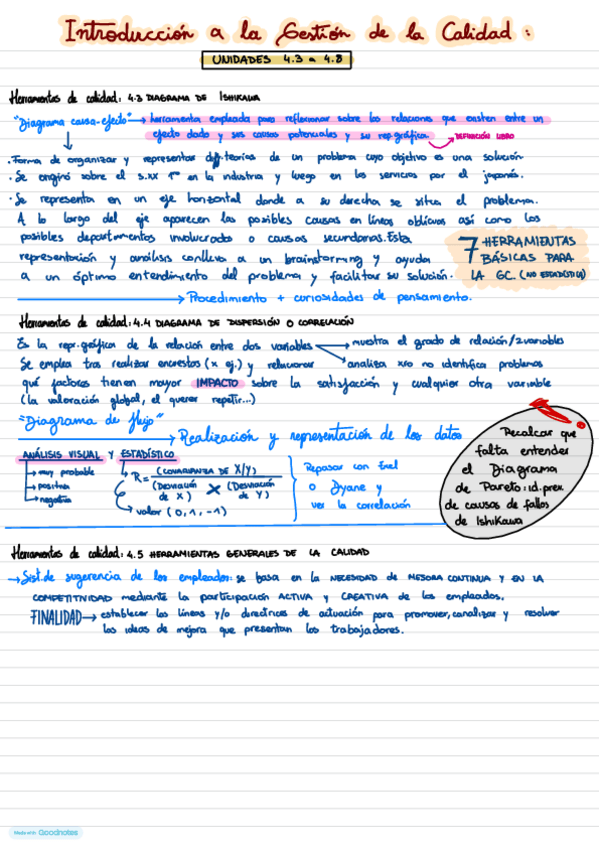 Introducción a la Gestión de la Calidad:
UNIDADES 4.3 a 4.8
Herramientas de calidad: 4.3 DIAGRAMA DE ISHIKAWA
"Diagrama causa-efecto" → herramienta empleada para reflexionar sobre las relaciones que existen entre un
efecto dado y sus causas potenciales y su rep.gráfica. → DEFINICIÓN LIBRO
· Forma de organizar y representar diff. teorías de un problema cuyo objetivo es una solución
· Se originó sobre el s.XX 1º en la industria y luego en los servicios por el japonés.
· Se representa en un eje horizontal donde a su derecha se sitúa el problema.
A lo largo del eje aparecen las posibles causas en líneas oblicuas así como los
posibles departamentos involucrados o causas secundarias. Esta
representación y análisis conlleva a un brainstorming y ayuda
a un óptimo entendimiento del problema y facilitar su solución.
7 HERRAMIENTAS
BÁSICAS PARA
LA GC. (NO ESTADÍSTICA)
→ Procedimiento + curiosidades de pensamiento.
Herramientas de calidad: 4.4 DIAGRAMA DE DISPERSIÓN O CORRELACIÓN
Es la repr.gráfica de la relación entre dos variables → muestra el grado de relación/2variables
→ analiza xro no identifica problemas
Se emplea tras realizar encuestas (x ej.) y relacionar
qué factores tienen mayor IMPACTO sobre la satisfacción y cualquier otra variable
(la valoración global, el querer repetir...)
"Diagrama de flujo"
→ Realización y representación de los datos
Recalcar que
falta entender
el Diagrama
de Pareto: id. prex.
de causas de fallos
de Ishikawa
ANÁLISIS VISUAL Y ESTADÍSTICO
→ muy probable
→ positiva
→ negativa
R = (COVARIANZA DE X/Y)
(DESVIACIÓN DE X) X (DESVIACIÓN DE Y)
→ valor (0, 1, -1)
Repasar con Exel
o Dyane y
ver la correlación
Herramientas de calidad: 4.5 HERRAMIENTAS GENERALES DE LA CALIDAD
→ Sist. de sugerencia de los empleados: se basa en la NECESIDAD DE MEJORA CONTINUA Y EN LA
COMPETITIVIDAD mediante la participación ACTIVA y CREATIVA de los empleados.
FINALIDAD → establecer las líneas y/o directrices de actuación para promover, canalizar y resolver
las ideas de mejora que presentan los trabajadores.
Made with Goodnotes